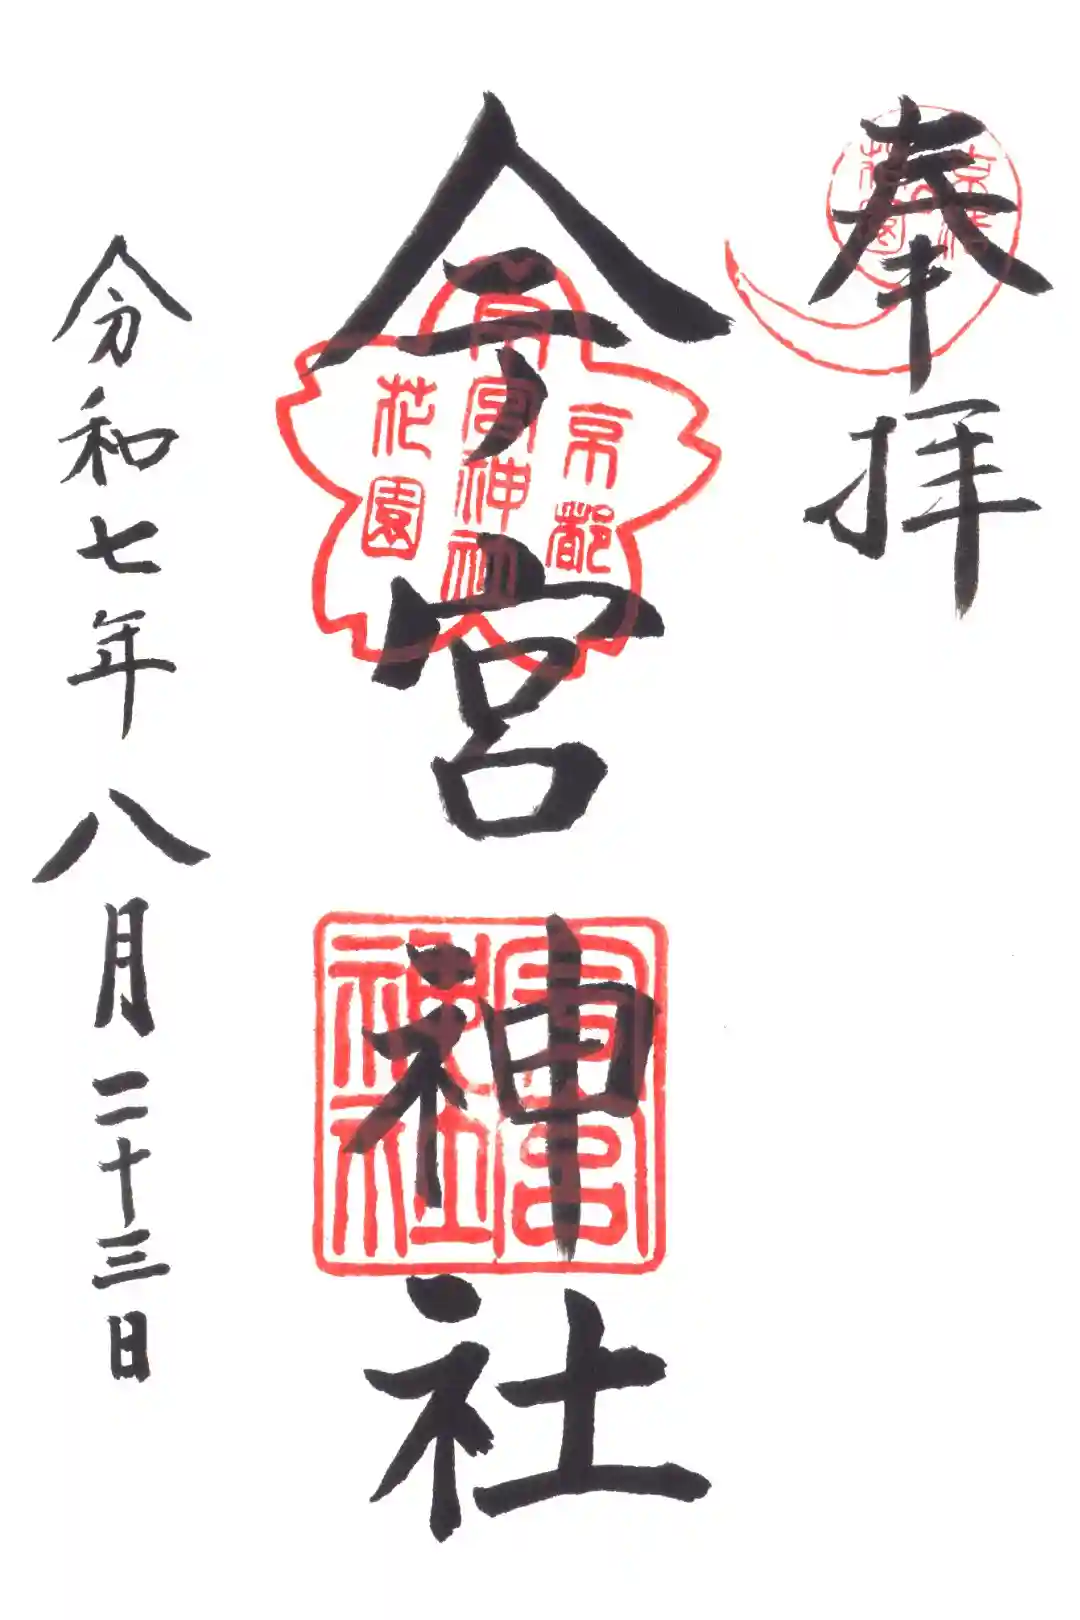 奉拝
京都
花園
今宮神社
京都
今宮神社
花園
今宮神社
令和七年八月二十三日